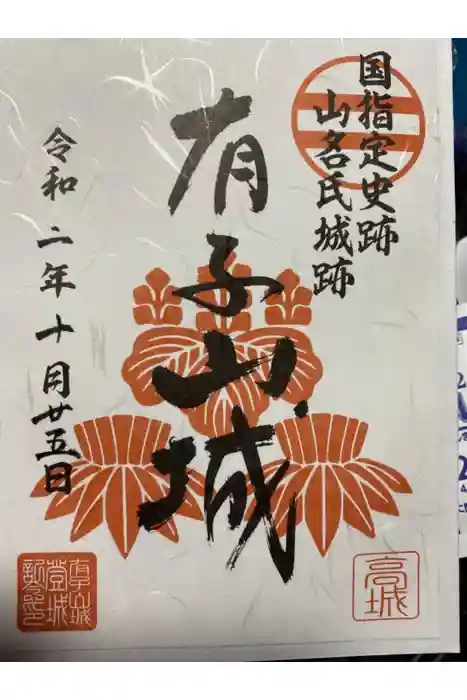 国指定史跡
山名氏城跡
有子山城
令和二年十月廿五日
登城
高城